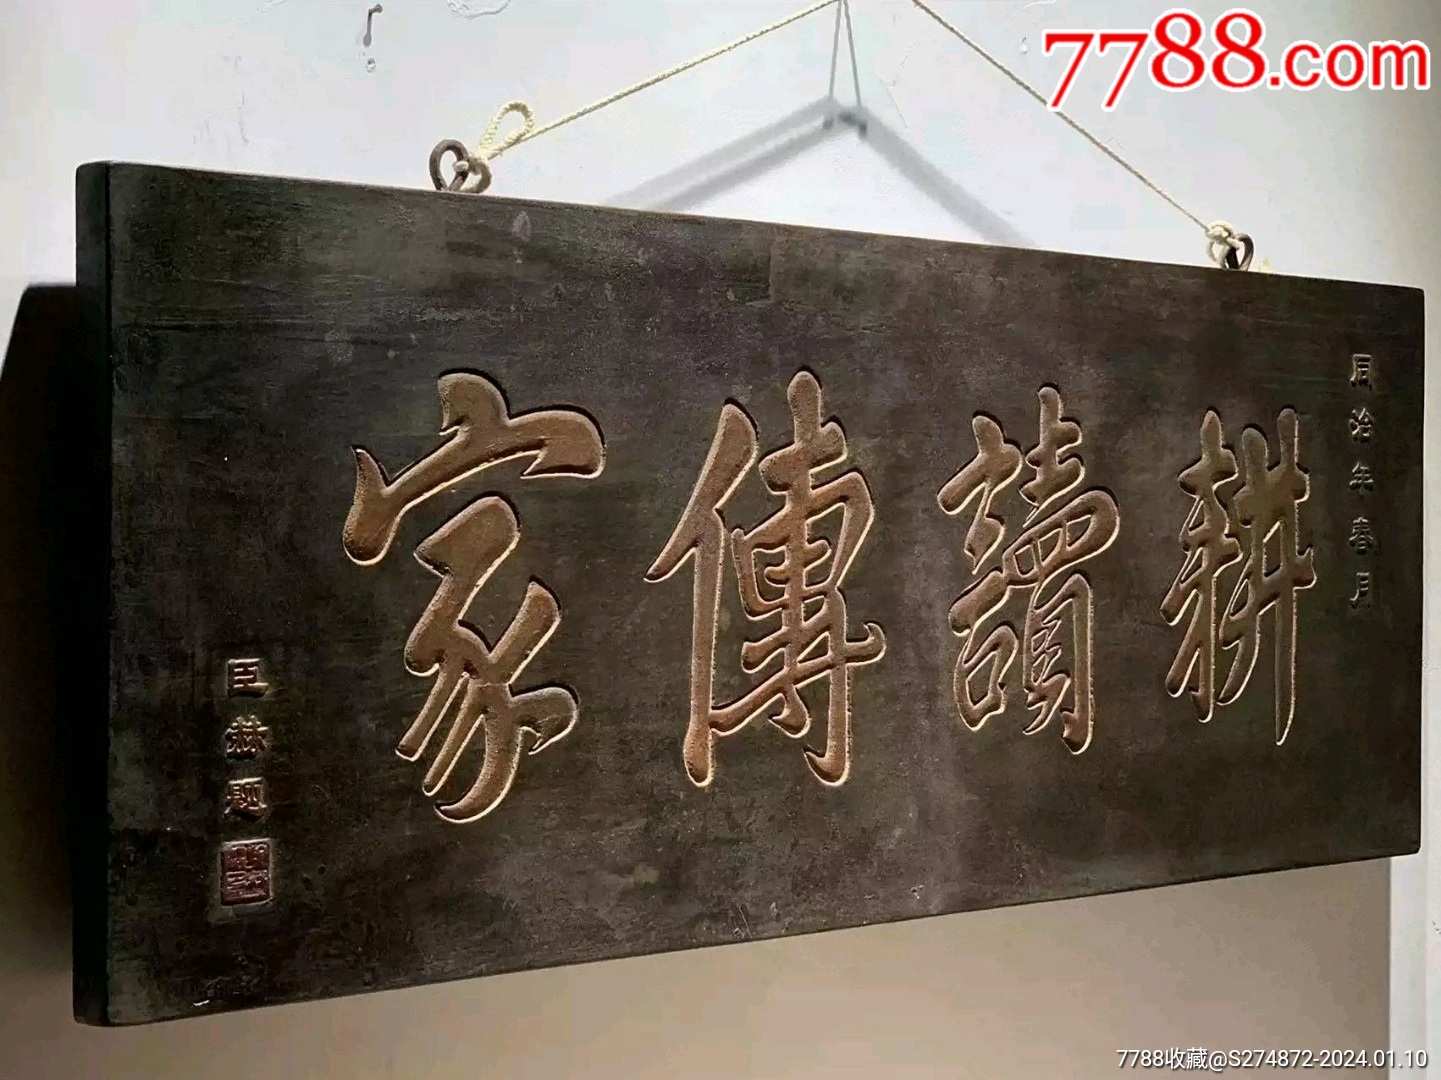 7788.com
同治年春月
耕讀傳家
臣赫题
7788收藏@S274872-2024.01.10